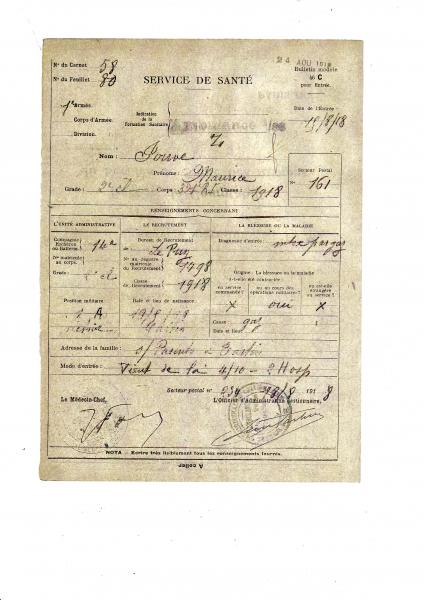 N° du Carnet 58
24 AOU 1918
N° du Feuillet 80
Bulletin modèle
46 C
pour Entrée.
SERVICE DE SANTÉ
1re Armée.
Corps d'Armée.
Division.
Indication
de la
Formation Sanitaire
Date de l'Entrée
19/8/18
Nom : Jouve
Prénoms : Maurice
Secteur Postal
N° 161
Grade : 2e Cl Corps : Classe : 1918
RENSEIGNEMENTS CONCERNANT
L'UNITÉ ADMINISTRATIVE
LE RECRUTEMENT
LA BLESSURE OU LA MALADIE
Compagnie
Escadron
ou Batterie : 14e
Bureau de Recrutement
Le Puy
Diagnostic d'entrée : intox par gaz
N° matricule
au corps.
N° au registre
matricule
du Recrutement : 1798
Grade : 2e cl
Classe
de
Recrutement : 1918
Origine : La blessure ou la maladie
a-t-elle été contractée :
en service
commandé ?
au au cours des
opérations militaires ?
ou est-elle
étrangère
au service ?
Position militaire
Date et lieu de naissance.
x oui x
A
Cause : gaz
Date et lieu :
Adresse de la famille : s/ Parents à
Mode d'entrée : Vient de la 4/10 - 2 Hosp
Secteur postal n° 234 19/8 1918
Le Médecin-Chef,
L'Officier d'Administration Gestionnaire,
NOTA — Écrire très lisiblement tous les renseignements fournis.
A coller